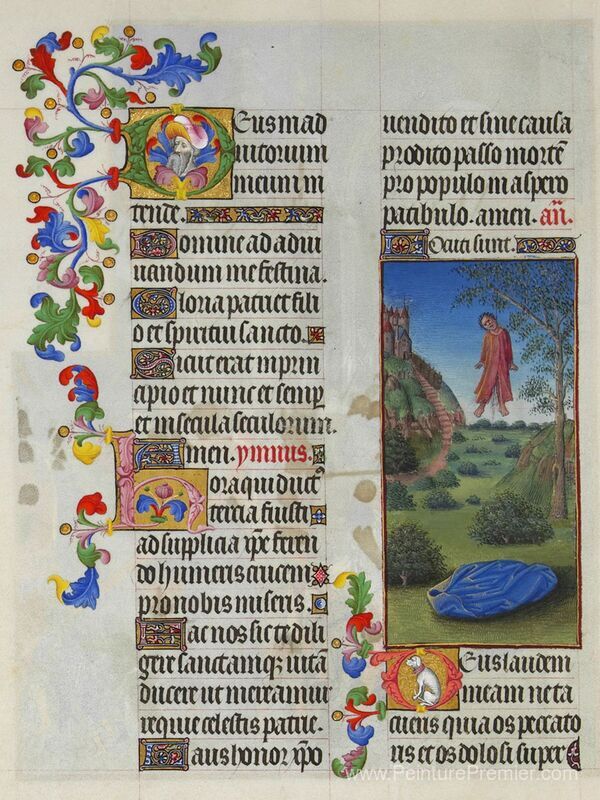 Deus in ad
iutorium
meum in
tende.
Domine ad adiu
uandum me festina.
Gloria patri et fili
o et spiritui sancto.
Sicut erat in prin
cipio et nunc et semp
et in secula seculorum.
Amen. ymnus.
Hora qui duct
tercia fuisti
ad supplicia xpe feren
do humeris crucem
pro nobis miseris.
Hac nos sic te dili
gere sanctamq; uitā
ducere ut mereamur
requie celestis patrie.
Laus honor xpo
uendito et sine causa
prodito passo mortē
pro populo in aspero
patibulo. amen. añ.
sunt.
Deus laudem
meam ne ta
cueris quia os peccato
ris et os dolosi super
www.PeinturePremier.com